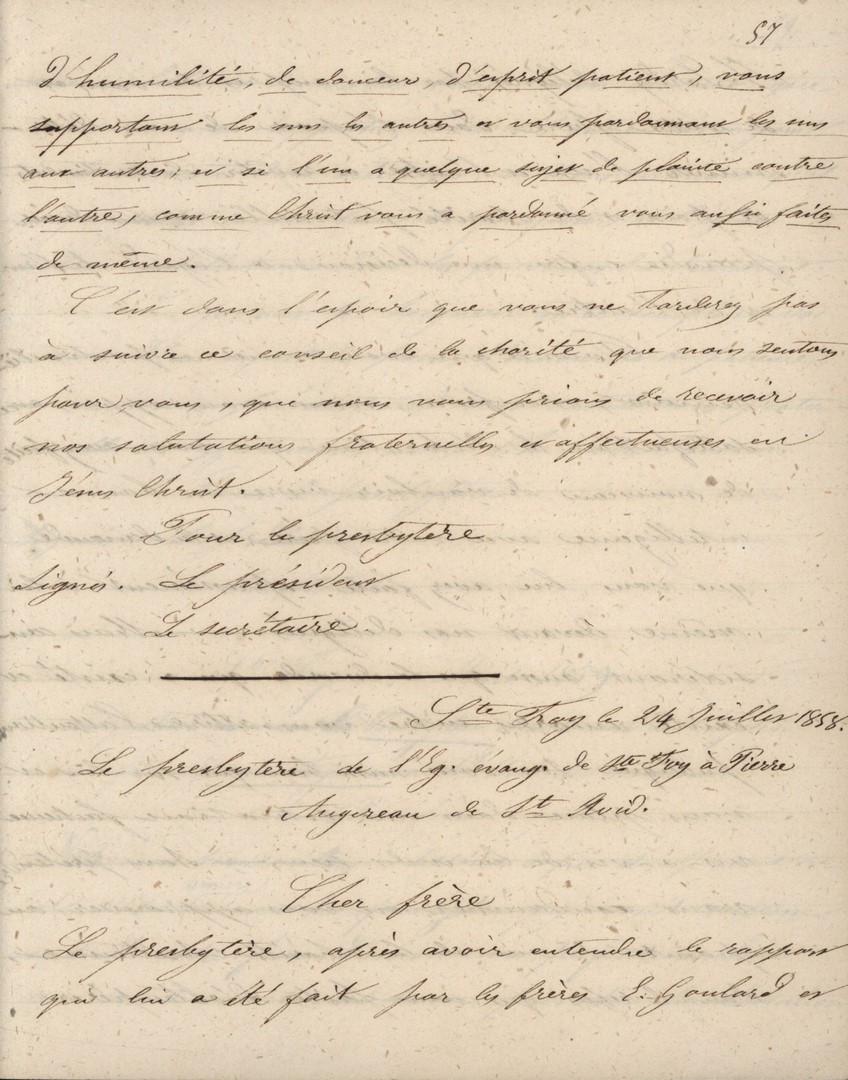 57
d'humilité, de douceur, d'esprit patient, vous
supportant les uns les autres et vous pardonnant les uns
aux autres; et si l'un a quelque sujet de plainte contre
l'autre, comme Christ vous a pardonné vous aussi faites
de même.
C'est dans l'espoir que vous ne tarderez pas
à suivre ce conseil de la charité, que nous sentons
pour vous, que nous vous prions de recevoir
nos salutations fraternelles et affectueuses en
Jésus Christ.
Pour le presbytère
Signés. Le président
Le secrétaire
Ste Foy le 24 Juillet 1858.
Le presbytère de l'Eg. évang. de Ste Foy à Pierre
Augereau de St Avid.
Cher frère
Le presbytère, après avoir entendu le rapport
qui lui a été fait par les frères E. Goulard et